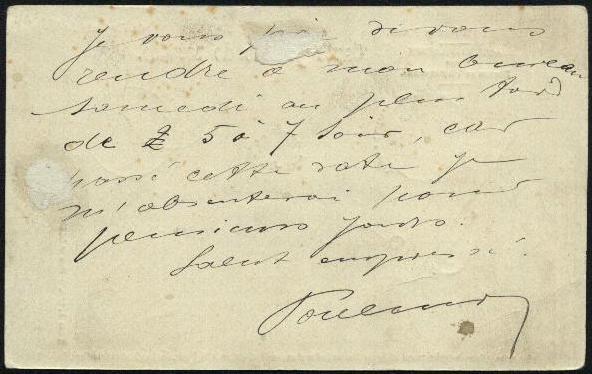 Je vous prie de vous
rendre à mon bureau
samedi au plus tard
de 5 à 7 soir, car
passé cette date je
m'absenterai pour
plusieurs jours.
Salut empressé.